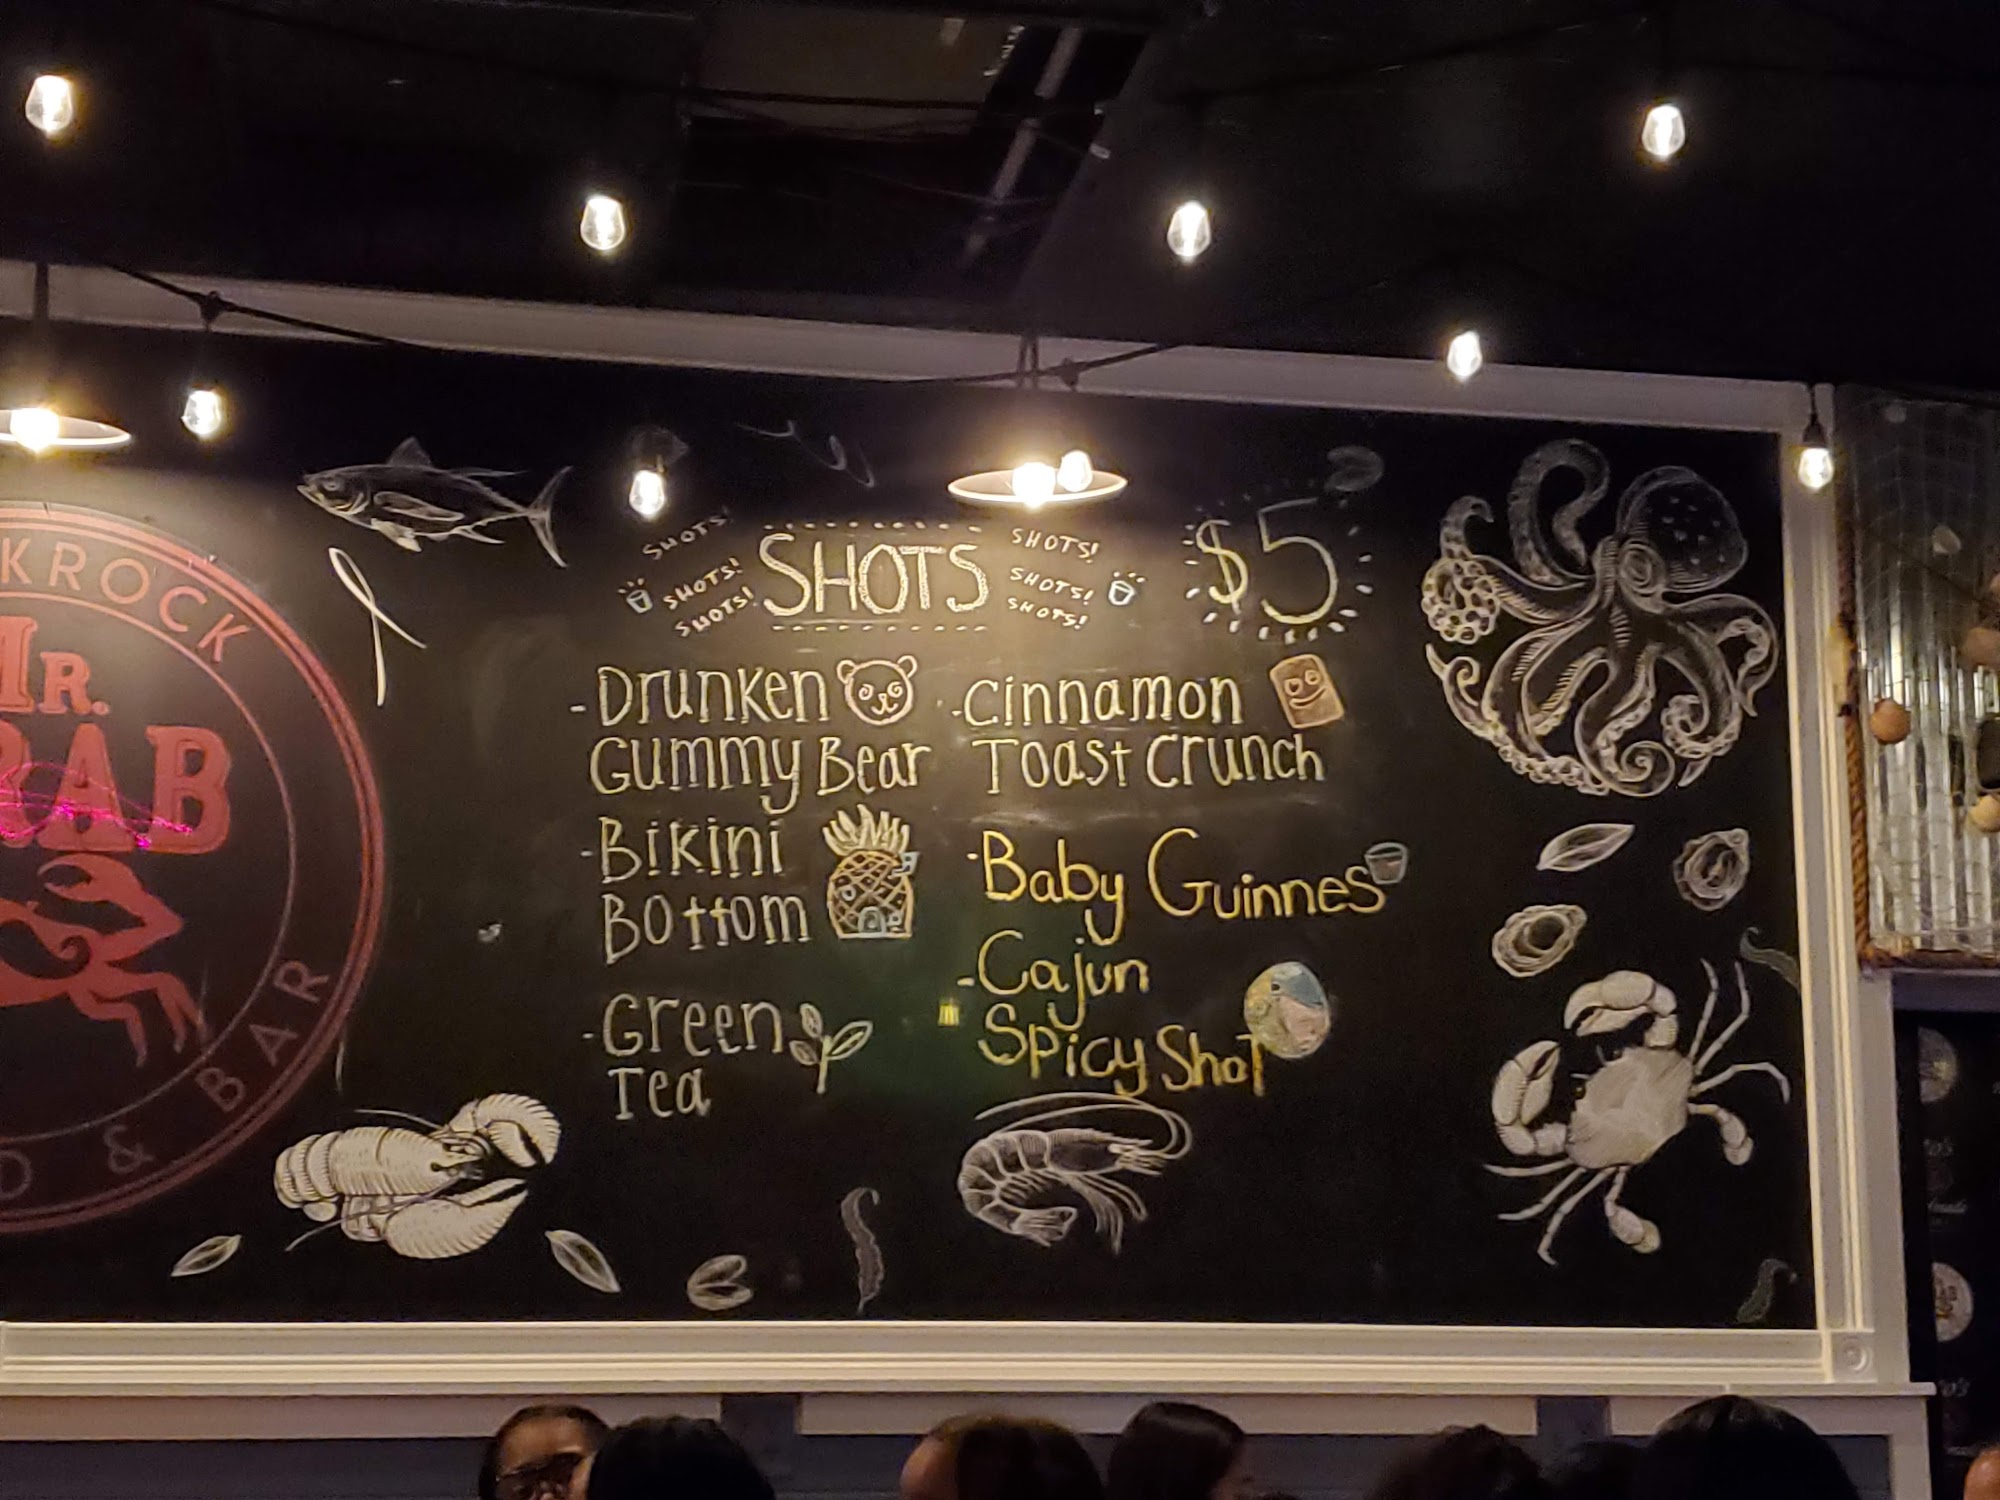 KROCK
MR.
RAB
& BAR
SHOTS!
SHOTS!
SHOTS!
SHOTS
SHOTS!
SHOTS!
SHOTS!
$5
-Drunken
Gummy Bear
-Bikini
Bottom
-Green
Tea
-Cinnamon
Toast Crunch
-Baby Guinnes
-Cajun
Spicy Shot